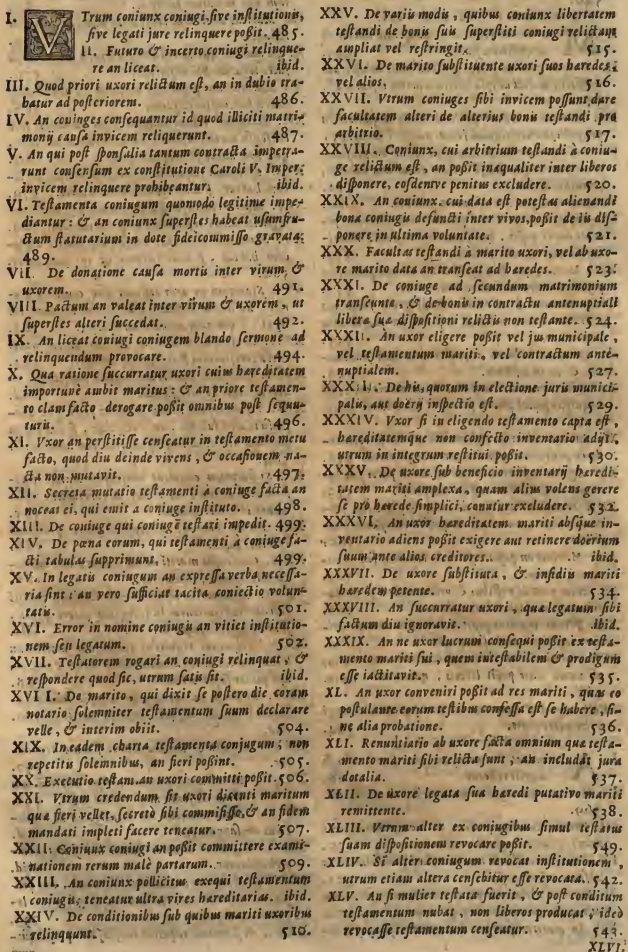 I. VTrum coniunx coniugi sive institutionis,
sive legati jure relinquere possit. 485.
II. Futuro & incerto coniugi relinque-
re an liceat. ibid.
III. Quod priori uxori relictum est, an in dubio tra-
hatur ad posteriorem. 486.
IV. An conjuges consequantur id quod illiciti matri-
monij causa invicem reliquerunt. 487.
V. An qui post sponsalia tantum contracta impetra-
runt consensum ex constitutione Caroli V. Imper:
invicem relinquere prohibeantur. ibid.
VI. Testamenta coniugum quomodo legitime impe-
diantur: & an coniunx superstes habeat usumfru-
ctum statutarium in dote fideicommisso gravata:
489.
VII. De donatione causa mortis inter virum, &
uxorem. 491.
VIII. Pactum an valeat inter virum & uxorem, ut
superstes alteri succedat. 492.
IX. An liceat coniugi coniugem blando sermone ad
relinquendum provocare. 494.
X. Qua ratione succurratur uxori cuius hæreditatem
importunè ambit maritus: & an priore testamen-
to clam facto derogare possit omnibus post sequu-
turis. 496.
XI. Vxor an perstitisse censeatur in testamento metu
facto, quod diu deinde vivens, & occasionem na-
cta non mutavit. 497.
XII. Secreta mutatio testamenti à coniuge facta an
noceat ei, qui emit a coniuge instituto. 498.
XIII. De coniuge qui coniugē testari impedit. 499.
XIV. De pœna eorum, qui testamenti à coniuge fa-
cti tabulas supprimunt. 499.
XV. In legatis coniugum an expressa verba necessa-
ria sint: an vero sufficiat tacita coniectio volun-
tatis. 501.
XVI. Error in nomine coniugis an vitiet institutio-
nem seu legatum. 502.
XVII. Testatorem rogari an coniugi relinquat, &
respondere quod sic, utrum satis sit. ibid.
XVI I. De marito, qui dixit se postero die coram
notario solemniter testamentum suum declarare
velle, & interim obiit. 504.
XIX. In eadem charta testamenta conjugum; non
repetitis solemnibus, an fieri possint. 505.
XX. Executio testam. an uxori committi possit. 506.
XXI. Vtrum credendum sit uxori dicenti maritum
qua fieri vellet, secretò sibi commisisse, & an fidem
mandati impleti facere teneatur. 507.
XXII. Coniunx coniugi an possit committere exami-
nationem rerum malè partarum. 509.
XXIII. An coniunx pollicitus exequi testamentum
coniugis, teneatur ultra vires hæreditarias. ibid.
XXIV. De conditionibus sub quibus mariti uxoribus
relinquunt. 510.
XXV. De variis modis, quibus coniunx libertatem
testandi de bonis suis superstiti coniugi relictam
ampliat vel restringit. 515.
XXVI. De marito substituente uxori suos hæredes,
vel alios. 516.
XXVII. Vtrum coniuges sibi invicem possunt dare
facultatem alteri de alterius bonis testandi pro
arbitrio. 517.
XXVIII. Coniunx, cui arbitrium testandi à coniu-
ge relictum est, an possit inæqualiter inter liberos
disponere, eosdemve penitus excludere. 520.
XXIX. An coniunx cui data est potestas alienandi
bona coniugis defuncti inter vivos, possit de iis dis-
ponere in ultima voluntate. 521.
XXX. Facultas testandi à marito uxori, vel ab uxo-
re marito data an transeat ad hæredes. 523.
XXXI. De coniuge ad secundum matrimonium
transeunte, & de bonis in contractu antenuptiali
libera sua dispositioni relictis non testante. 524.
XXXII. An uxor eligere possit vel jus municipale,
vel testamentum mariti, vel contractum ante-
nuptialem. 527.
XXXIII. De his, quorum in electione juris munici-
palis, aut doarij inspectio est. 529.
XXXIV. Vxor si in eligendo testamento capta est,
hæreditatemque non confecto inventario adijt,
utrum in integrum restitui possit. 530.
XXXV. De uxore sub beneficio inventarij heredi-
tatem mariti amplexa, quam alius volens gerere
se pro hærede simplici, conatur excludere. 532.
XXXVI. An uxor hæreditatem mariti absque in-
ventario adiens possit exigere aut retinere doarium
suum ante alios creditores. ibid.
XXXVII. De uxore substituta, & insidiis mariti
hæredem petente. 534.
XXXVIII. An succurratur uxori, quæ legatum sibi
factum diu ignoravit. ibid.
XXXIX. An ne uxor lucrum consequi possit ex testa-
mento mariti sui, quem intestabilem & prodigum
esse iactitavit. 535.
XL. An uxor conveniri possit ad res mariti, quas eo
postulante eorum testibus confessa est se habere, si-
ne alia probatione. 536.
XLI. Renuntiatio ab uxore facta omnium quæ testa-
mento mariti sibi relicta sunt, an includat jura
dotalia. 537.
XLII. De uxore legata sua hæredi putativo mariti
remittente. 538.
XLIII. Vtrum alter ex conjugibus simul testatus
suam dispositionem revocare possit. 549.
XLIV. Si alter coniugum revocat institutionem,
utrum etiam altera censebitur esse revocata. 542.
XLV. An si mulier testata fuerit, & post conditum
testamentum nubat, non liberos producat, ideò
revocasse testamentum censeatur. 543.
XLVI.